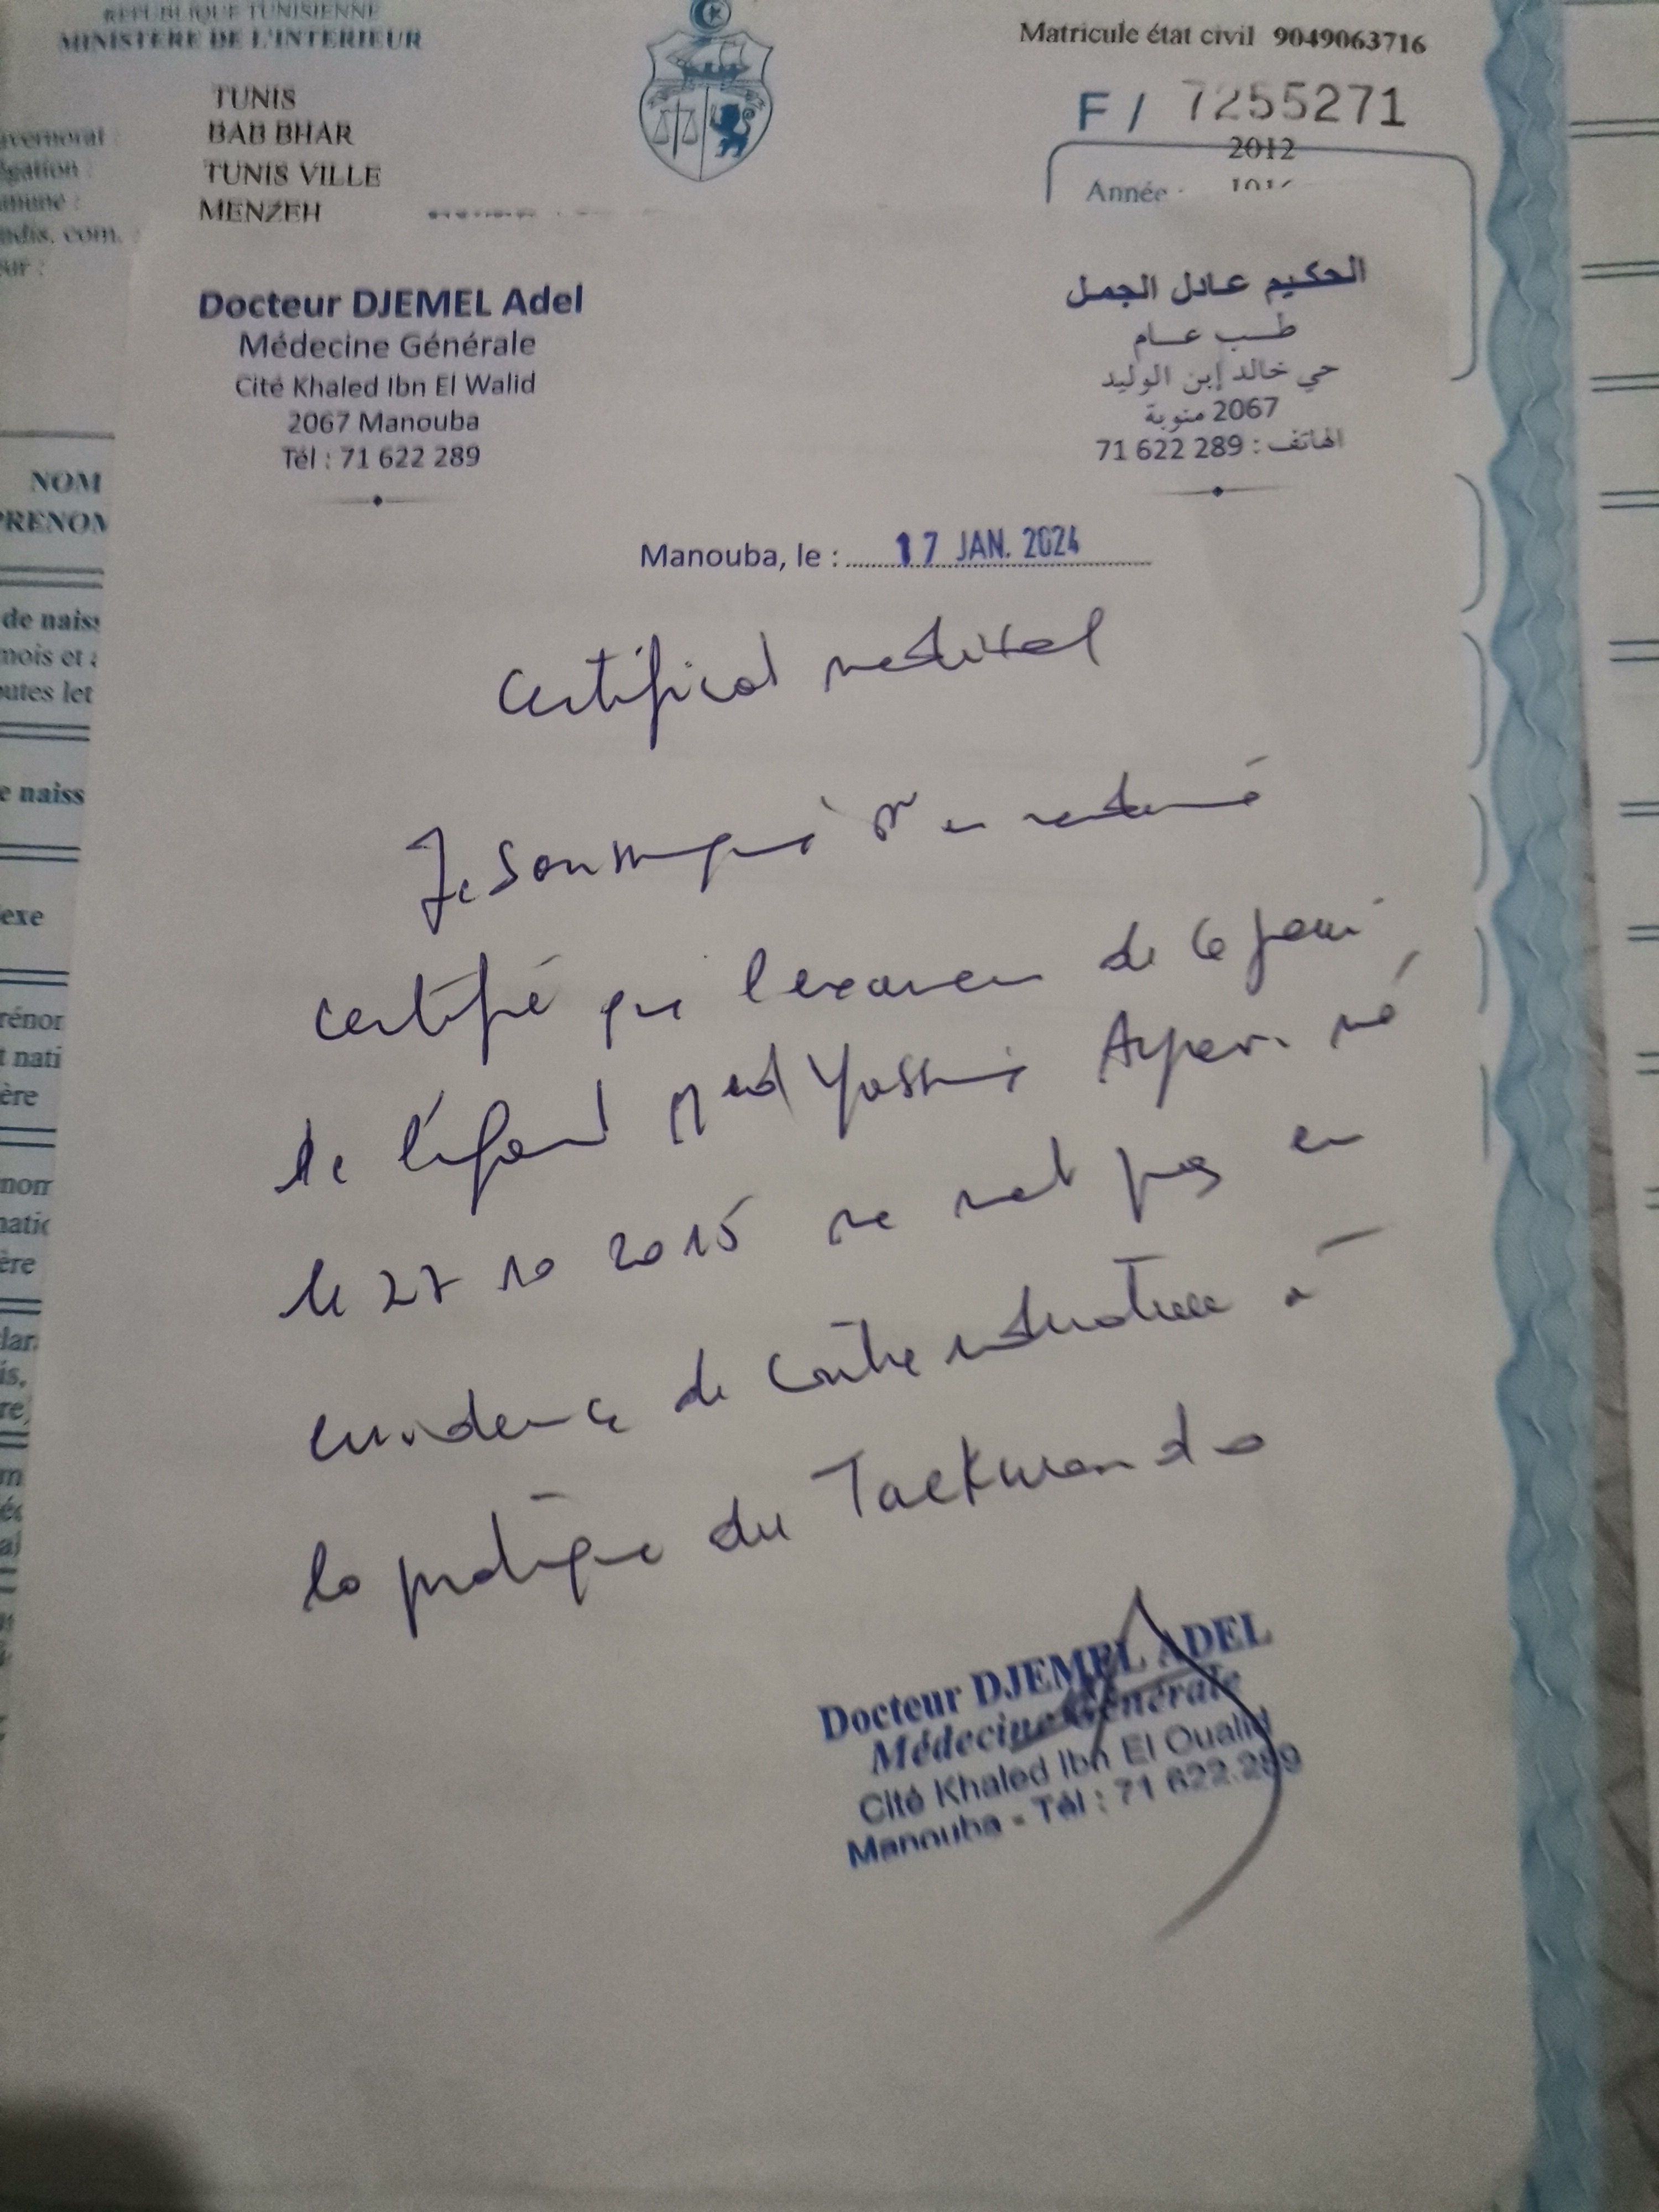 REPUBLIQUE TUNISIENNE
MINISTERE DE L'INTERIEUR
Matricule état civil 9049063716
F / 7255271
2012
Année
TUNIS
BAB BHAR
TUNIS VILLE
MENZEH
Docteur DJEMEL Adel
Médecine Générale
Cité Khaled Ibn El Walid
2067 Manouba
Tél : 71 622 289
الحكيم عادل الجمل
طب عام
حي خالد إبن الوليد
2067 منوبة
الهاتف : 71 622 289
NOM
PRENOM
de naiss
mois et a
outes let
e naiss
exe
Manouba, le : 17 JAN. 2024
Certificat medical
Je soussigné Dr en medecine
certifie que l'examen de ce jour
de l'enfant Med Yassine né
le 27 10 2015 ne met pas en
evidence de contre indication à
la pratique du Taekwando
Docteur DJEMEL ADEL
Médecine Générale
Cité Khaled Ibn El Oualid
Manouba - Tél : 71 622.289